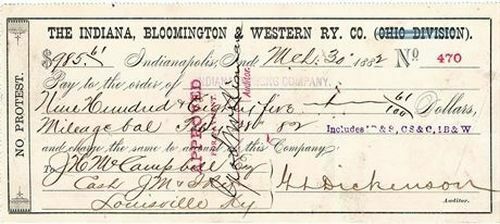 THE INDIANA, BLOOMINGTON & WESTERN RY. CO. (OHIO DIVISION).
$985.61 Indianapolis, Ind. Mch. 30 1882 No 470
Pay to the order of
Nine Hundred and Eighty five 61/100 Dollars,
Mileage bal 82 Includes
and charge the same to account of this Company:
J.H. McCampbell
Cash
Louisville Ky
H L Dickenson
Auditor.
NO PROTEST.
APPROVED
FOR PAYMENT
Auditor.